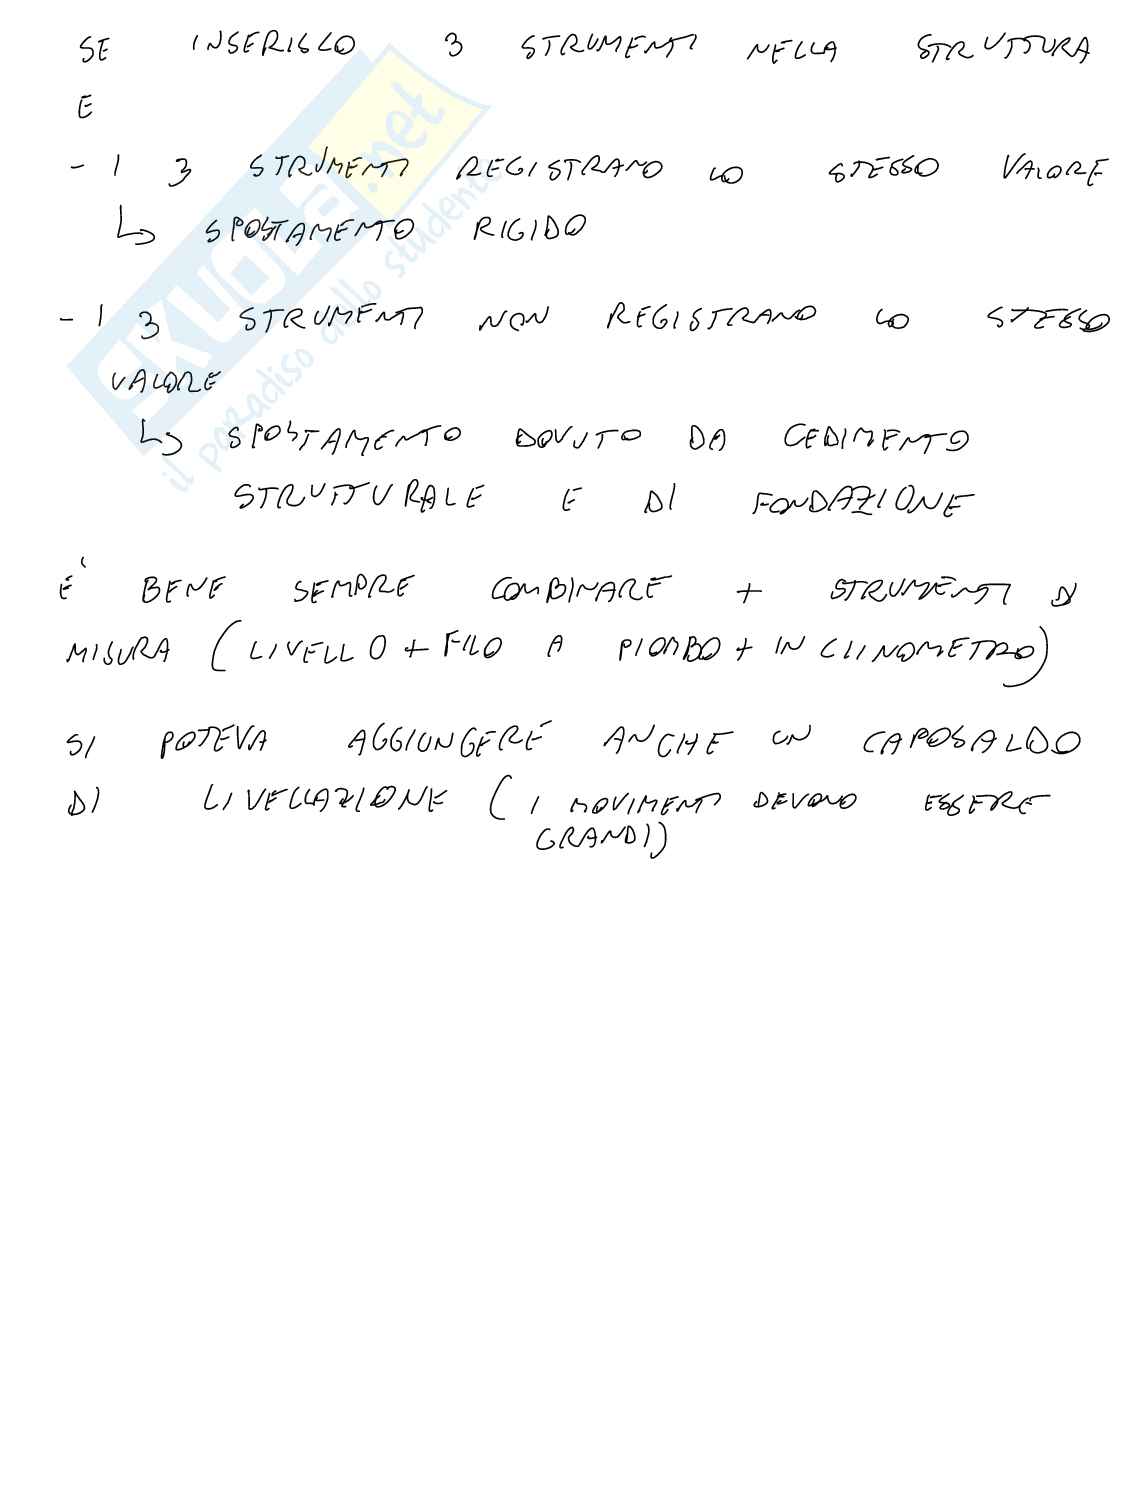 SE INSERISCO 3 STRUMENTI NELLA STRUTTURA
E
- I 3 STRUMENTI REGISTRANO LO STESSO VALORE
↳ SPOSTAMENTO RIGIDO
- I 3 STRUMENTI NON REGISTRANO LO STESSO
VALORE
↳ SPOSTAMENTO DOVUTO DA CEDIMENTO
STRUTTURALE E DI FONDAZIONE
E' BENE SEMPRE COMBINARE + STRUMENTI DI
MISURA (LIVELLO + FILO A PIOMBO + INCLINOMETRO)
SI POTEVA AGGIUNGERE ANCHE UN CAPOSALDO
DI LIVELLAZIONE (I MOVIMENTI DEVONO ESSERE
GRANDI)
SKUOLA.net
il paradiso dello studente